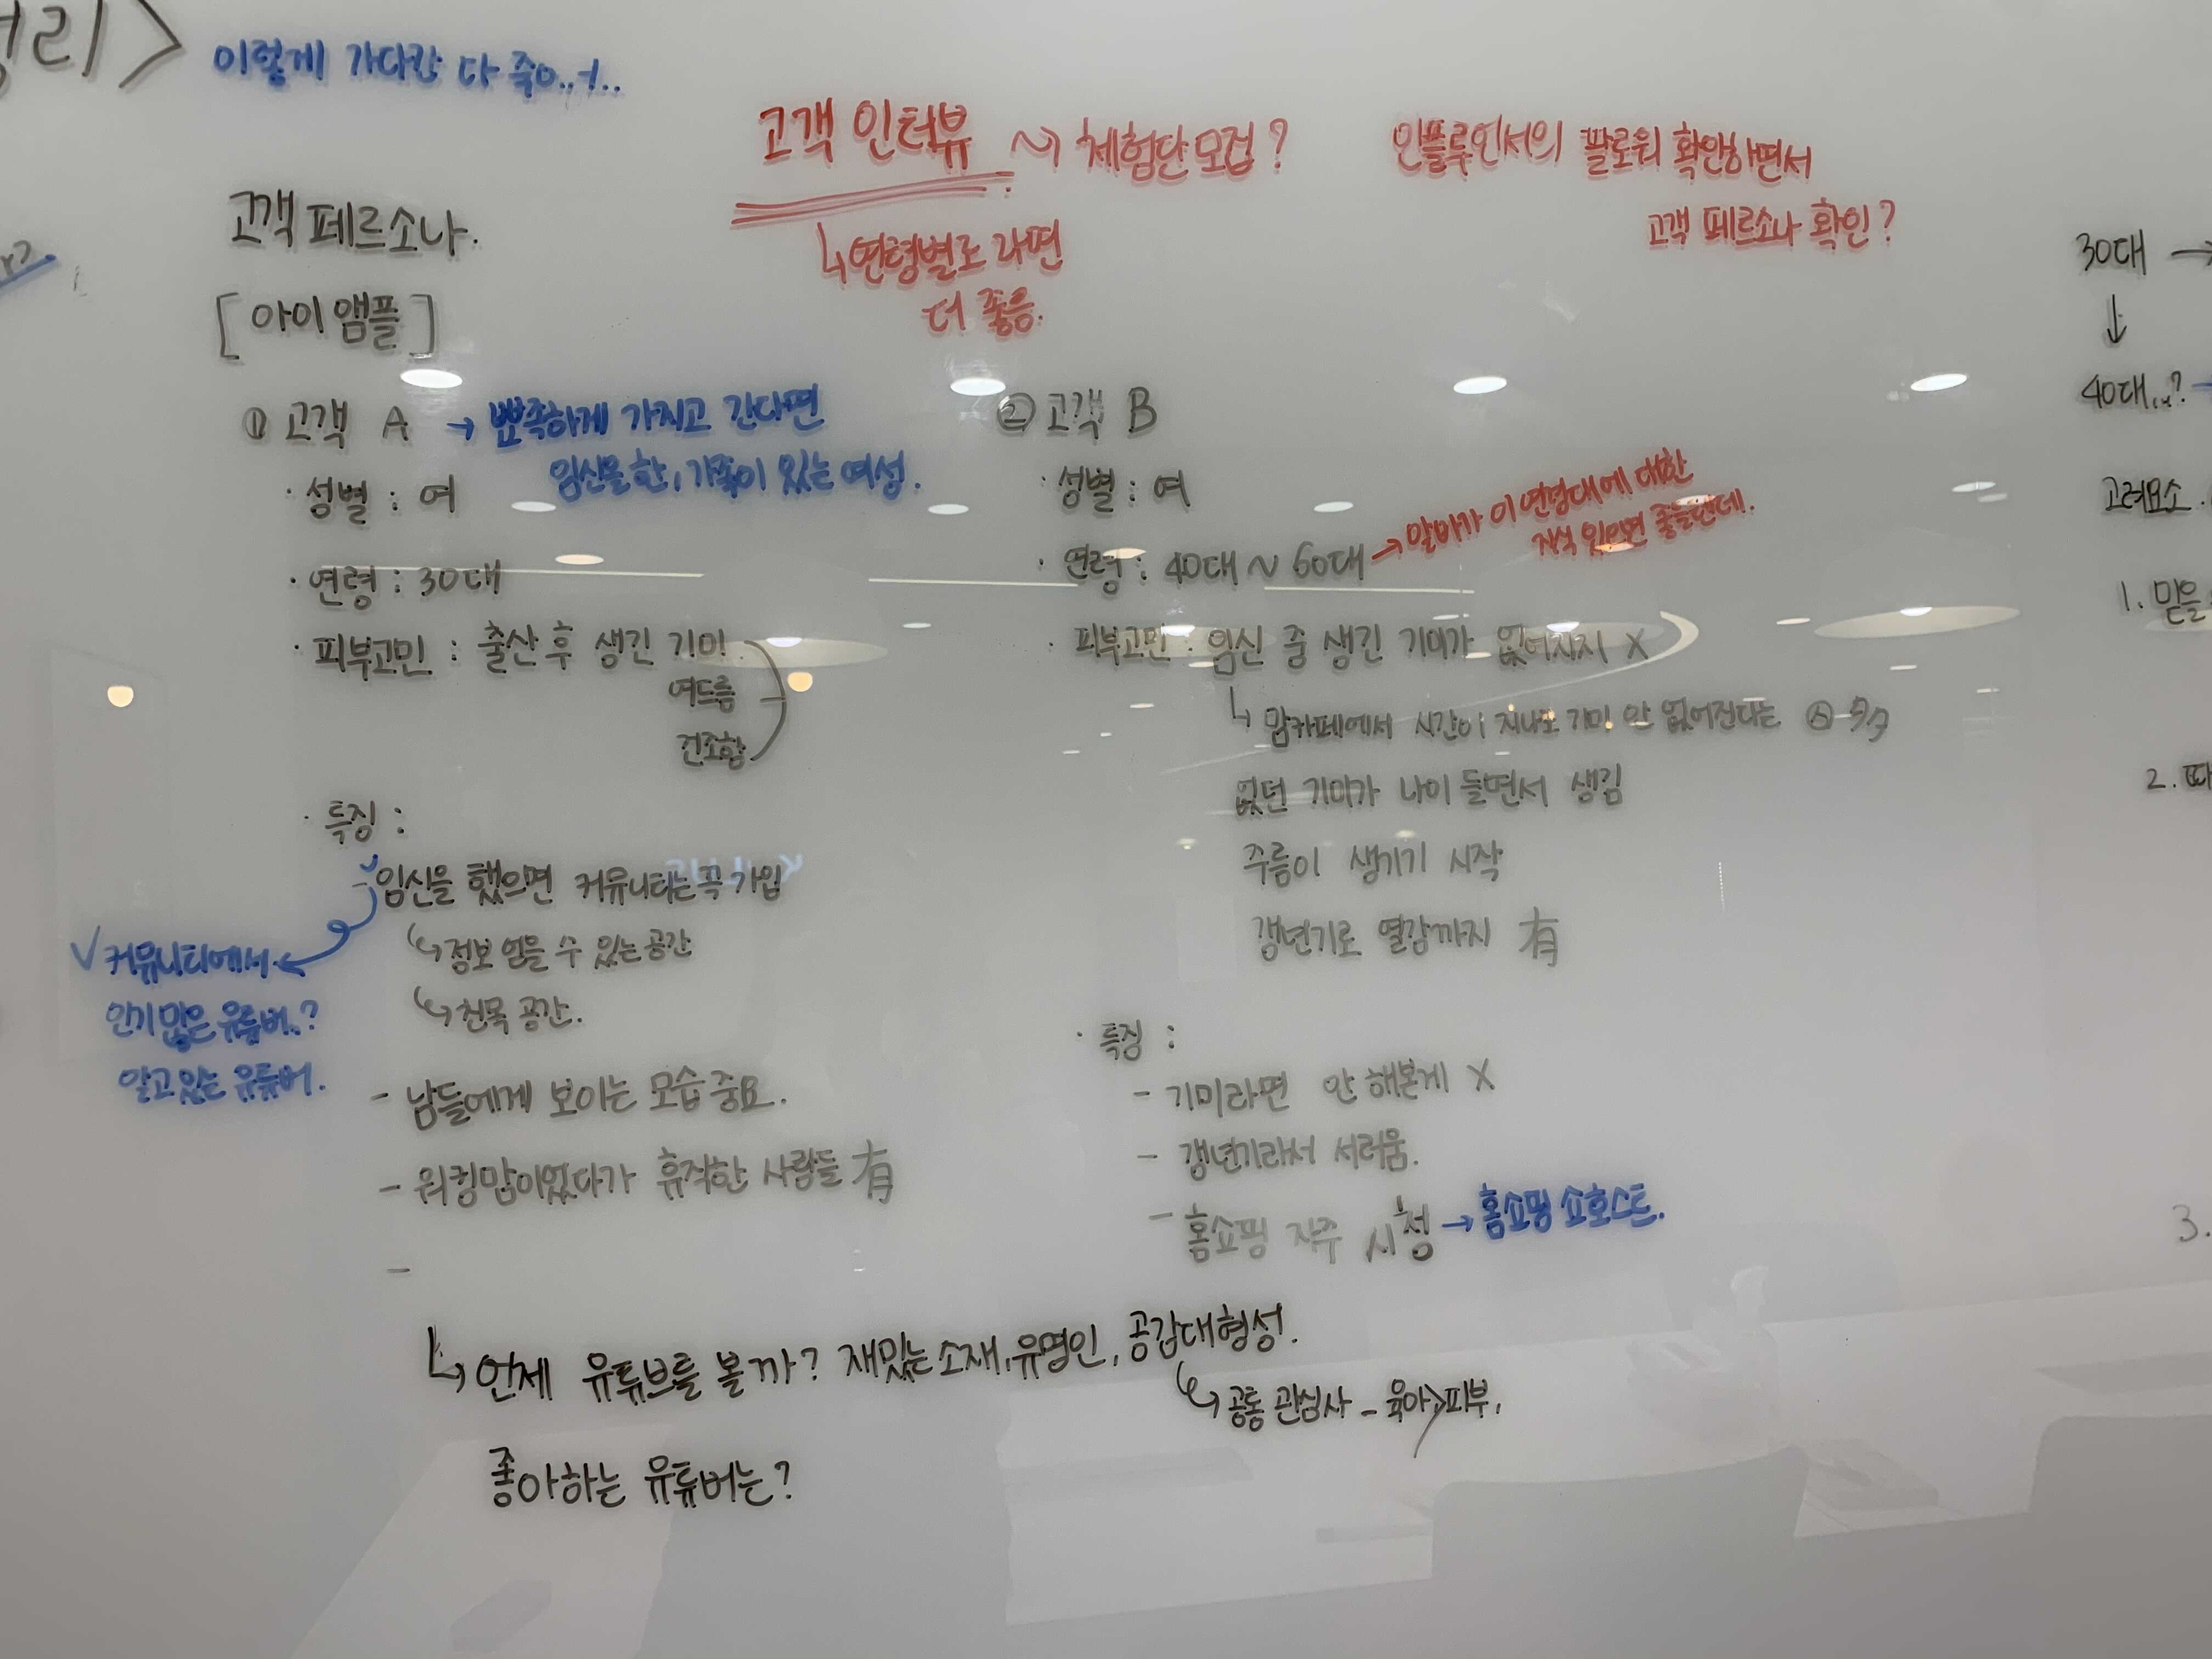 이렇게 가다간 다 죽어..ㅓ..
고객 인터뷰 ~> 체험단 모집?
↳ 연령별로 라면
더 좋음.
인플루언서의 팔로워 확인하면서
고객 페르소나 확인?
고객 페르소나.
[아이앰플]
① 고객 A → 뾰족하게 가지고 간다면
임신을 한, 가족이 있는 여성.
· 성별 : 여
· 연령 : 30대
· 피부고민 : 출산 후 생긴 기미
여드름
건조함
· 특징 :
- 임신을 했으면 커뮤니티는 꼭 가입
↳ 정보 얻을 수 있는 공간
↳ 친목 공간.
✓ 커뮤니티에서
인기 많은 유튜버..?
알고 있는 유튜버.
- 남들에게 보이는 모습 중요.
- 워킹맘이었다가 휴직한 사람들 有
-
② 고객 B
· 성별 : 여
· 연령 : 40대 ~ 60대 → 알바가 이 연령대에 대한
지식 있으면 좋을텐데.
· 피부고민 : 임신 중 생긴 기미가 없어지지 X
↳ 맘카페에서 시간이 지나도 기미 안 없어진다는
없던 기미가 나이 들면서 생김
주름이 생기기 시작
갱년기로 열감까지 有
· 특징 :
- 기미라면 안 해본게 X
- 갱년기라서 서러움.
- 홈쇼핑 자주 시청 → 홈쇼핑 쇼호스트.
↳ 언제 유튜브를 볼까? 재밌는 소재, 유명인, 공감대형성.
↳ 공통 관심사 - 육아>피부.
좋아하는 유튜버는?
30대 →
↓
40대..?
고려요소.
1. 믿을
2. 따
3.